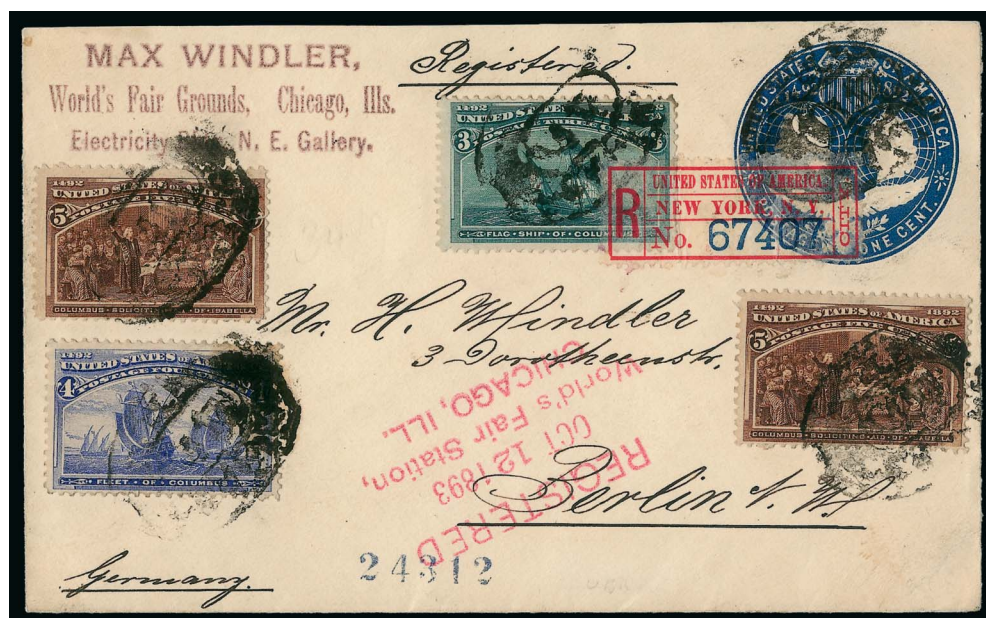 MAX WINDLER,
World's Fair Grounds, Chicago, Ills.
Electricity N. E. Gallery.
Registered.
UNITED STATES OF AMERICA.
ONE CENT.
1492
UNITED STATES
3
FLAG-SHIP OF COLUM
R
UNITED STATES OF AMERICA.
NEW YORK, N. Y.
No. 67407
1492
UNITED STATES OF
5
COLUMBUS SOLICITING AID OF ISABELLA
1492
UNITED STATES OF
POSTAGE FOUR
4
FLEET OF COLUMBUS
1492 1892
UNITED STATES OF AMERICA
POSTAGE FIVE
5
COLUMBUS SOLICITING AID OF ISABELLA
Mr. H. Windler
3 Dorotheenstr.
Berlin N. W.
Germany.
REGISTERED
OCT 12 1893
World's Fair Station,
CHICAGO, ILL.
24312